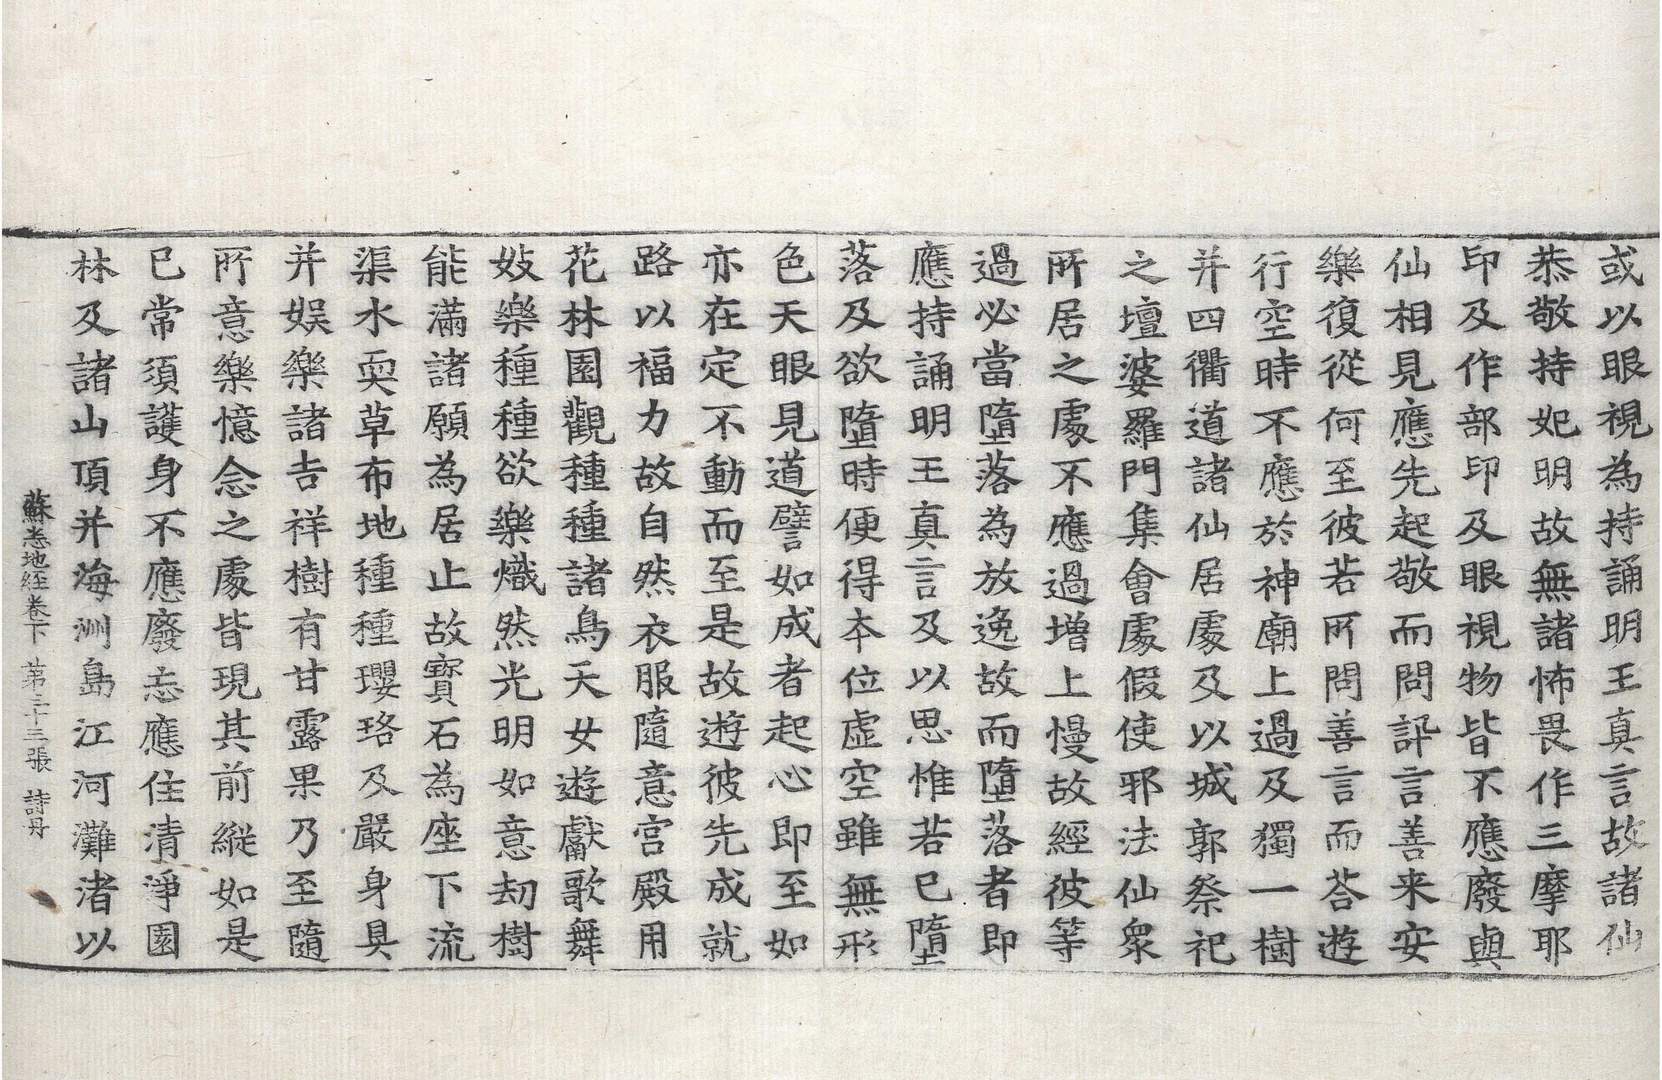 或以眼視為持誦明王真言故諸仙
恭敬持妃明故無諸怖畏作三摩耶
印及作部印及眼視物皆不應廢與
仙相見應先起敬而問訊言善来安
樂復從何至彼若所問善言而荅遊
行空時不應於神廟上過及獨一樹
并四衢道諸仙居處及以城郭祭祀
之壇婆羅門集會處假使邪法仙衆
所居之處不應過增上慢故經彼等
過必當墮落為放逸故而墮落者即
應持誦明王真言及以思惟若已墮
落及欲墮時便得夲位虛空雖無形
色天眼見道譬如成者起心即至如
亦在定不動而至是故遊彼先成就
路以福力故自然衣服隨意宮殿用
花林園觀種種諸鳥天女遊獻歌舞
妓樂種種欲樂熾然光明如意刧樹
能滿諸願為居止故寶石為座下流
渠水耎草布地種種瓔珞及嚴身具
并娛樂諸吉祥樹有甘露果乃至隨
所意樂憶念之處皆現其前縱如是
已常須護身不應廢忘應住清淨園
林及諸山頂并海洲島江河灘渚以
蘇悉地経卷下 苐二十三張 詩丹